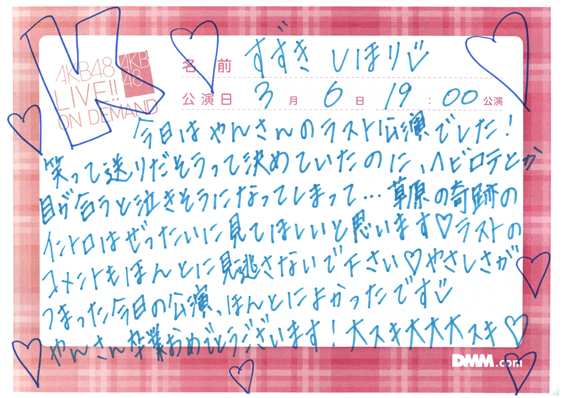 K
AKB48
LIVE!!
ON DEMAND
AKB48
名前 すずき しほり♡
公演日 3月6日 19:00公演
今日はやんさんのラスト公演でした!
笑って送りだそうって決めていたのに、ヘビロテとか
目が合うと泣きそうになってしまって…草原の奇跡の
イントロはぜったいに見てほしいと思います♡ラストの
コメントもほんとに見逃さないで下さい♡やさしさが
つまった今日の公演、ほんとによかったです♡
やんさん卒業おめでとうございます!大スキ大大大スキ♡
DMM.com